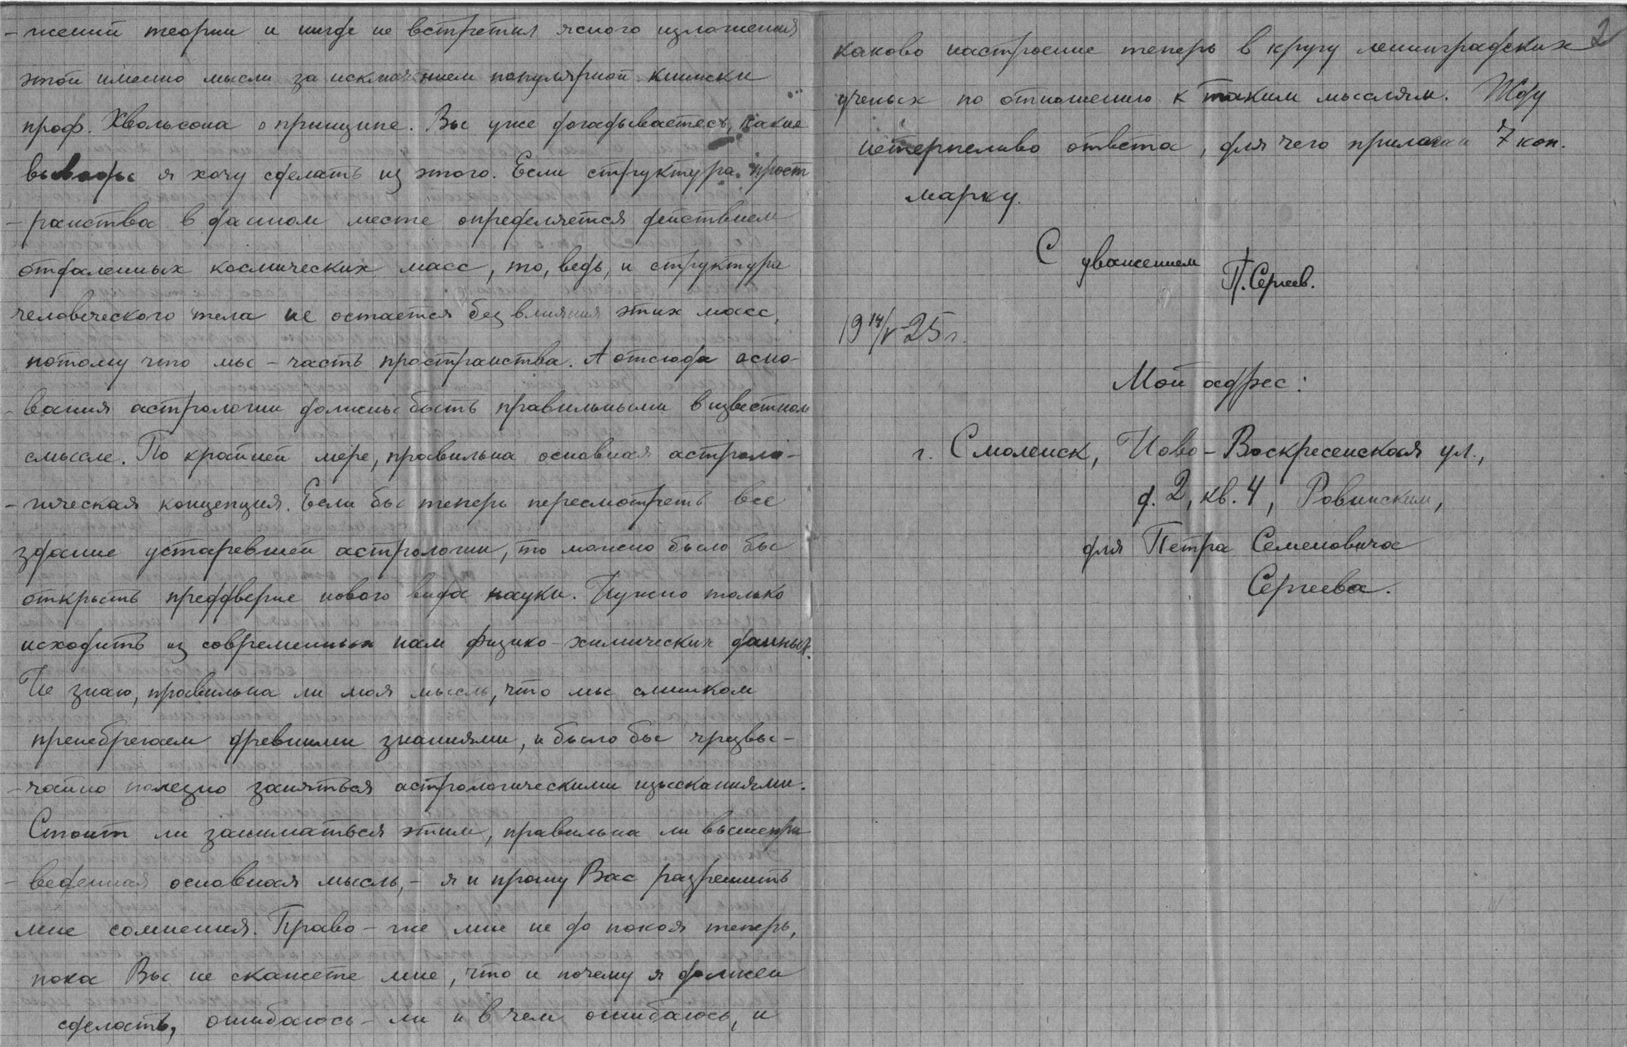 -жений теории и нигде не встретил ясного изложения
этой именно мысли за исключением популярной книжки
проф. Хвольсона о принципе. Вы уже догадываетесь, какие
выводы я хочу сделать из этого. Если структура прост
-ранства в данном месте определяется действием
отдаленных космических масс, то, ведь, и структура
человеческого тела не остается без влияния этих масс,
потому что мы - часть пространства. А отсюда осно-
-вания астрологии должны быть правильными в известном
смысле. По крайней мере, правильна основная астроло-
-гическая концепция. Если бы теперь пересмотреть все
здание устаревшей астрологии, то можно было бы
открыть преддверие нового вида науки. Нужно только
исходить из современных нам физико-химических данных.
Не знаю, правильна ли моя мысль, что мы слишком
пренебрегаем древними знаниями, и было бы чрезвы-
-чайно полезно заняться астрологическими изысканиями.
Стоит ли заниматься этим, правильна ли вышепри
-веденная основная мысль, - я и прошу Вас разрешить
мне сомнения. Право-же мне не до покоя теперь,
пока Вы не скажете мне, что и почему я должен
сделать, ошибаюсь-ли и в чем ошибаюсь, и
2
каково настроение теперь в кругу ленинградских
ученых по отношению к таким мыслям. Жду
нетерпеливо ответа, для чего прилагаю 7 коп.
марку.
С уважением
П. Сергеев.
19 14/V-25 г.
Мой адрес:
г. Смоленск, Ново-Воскресенская ул.,
д. 2, кв. 4, Ровинским,
для Петра Семеновича
Сергеева.